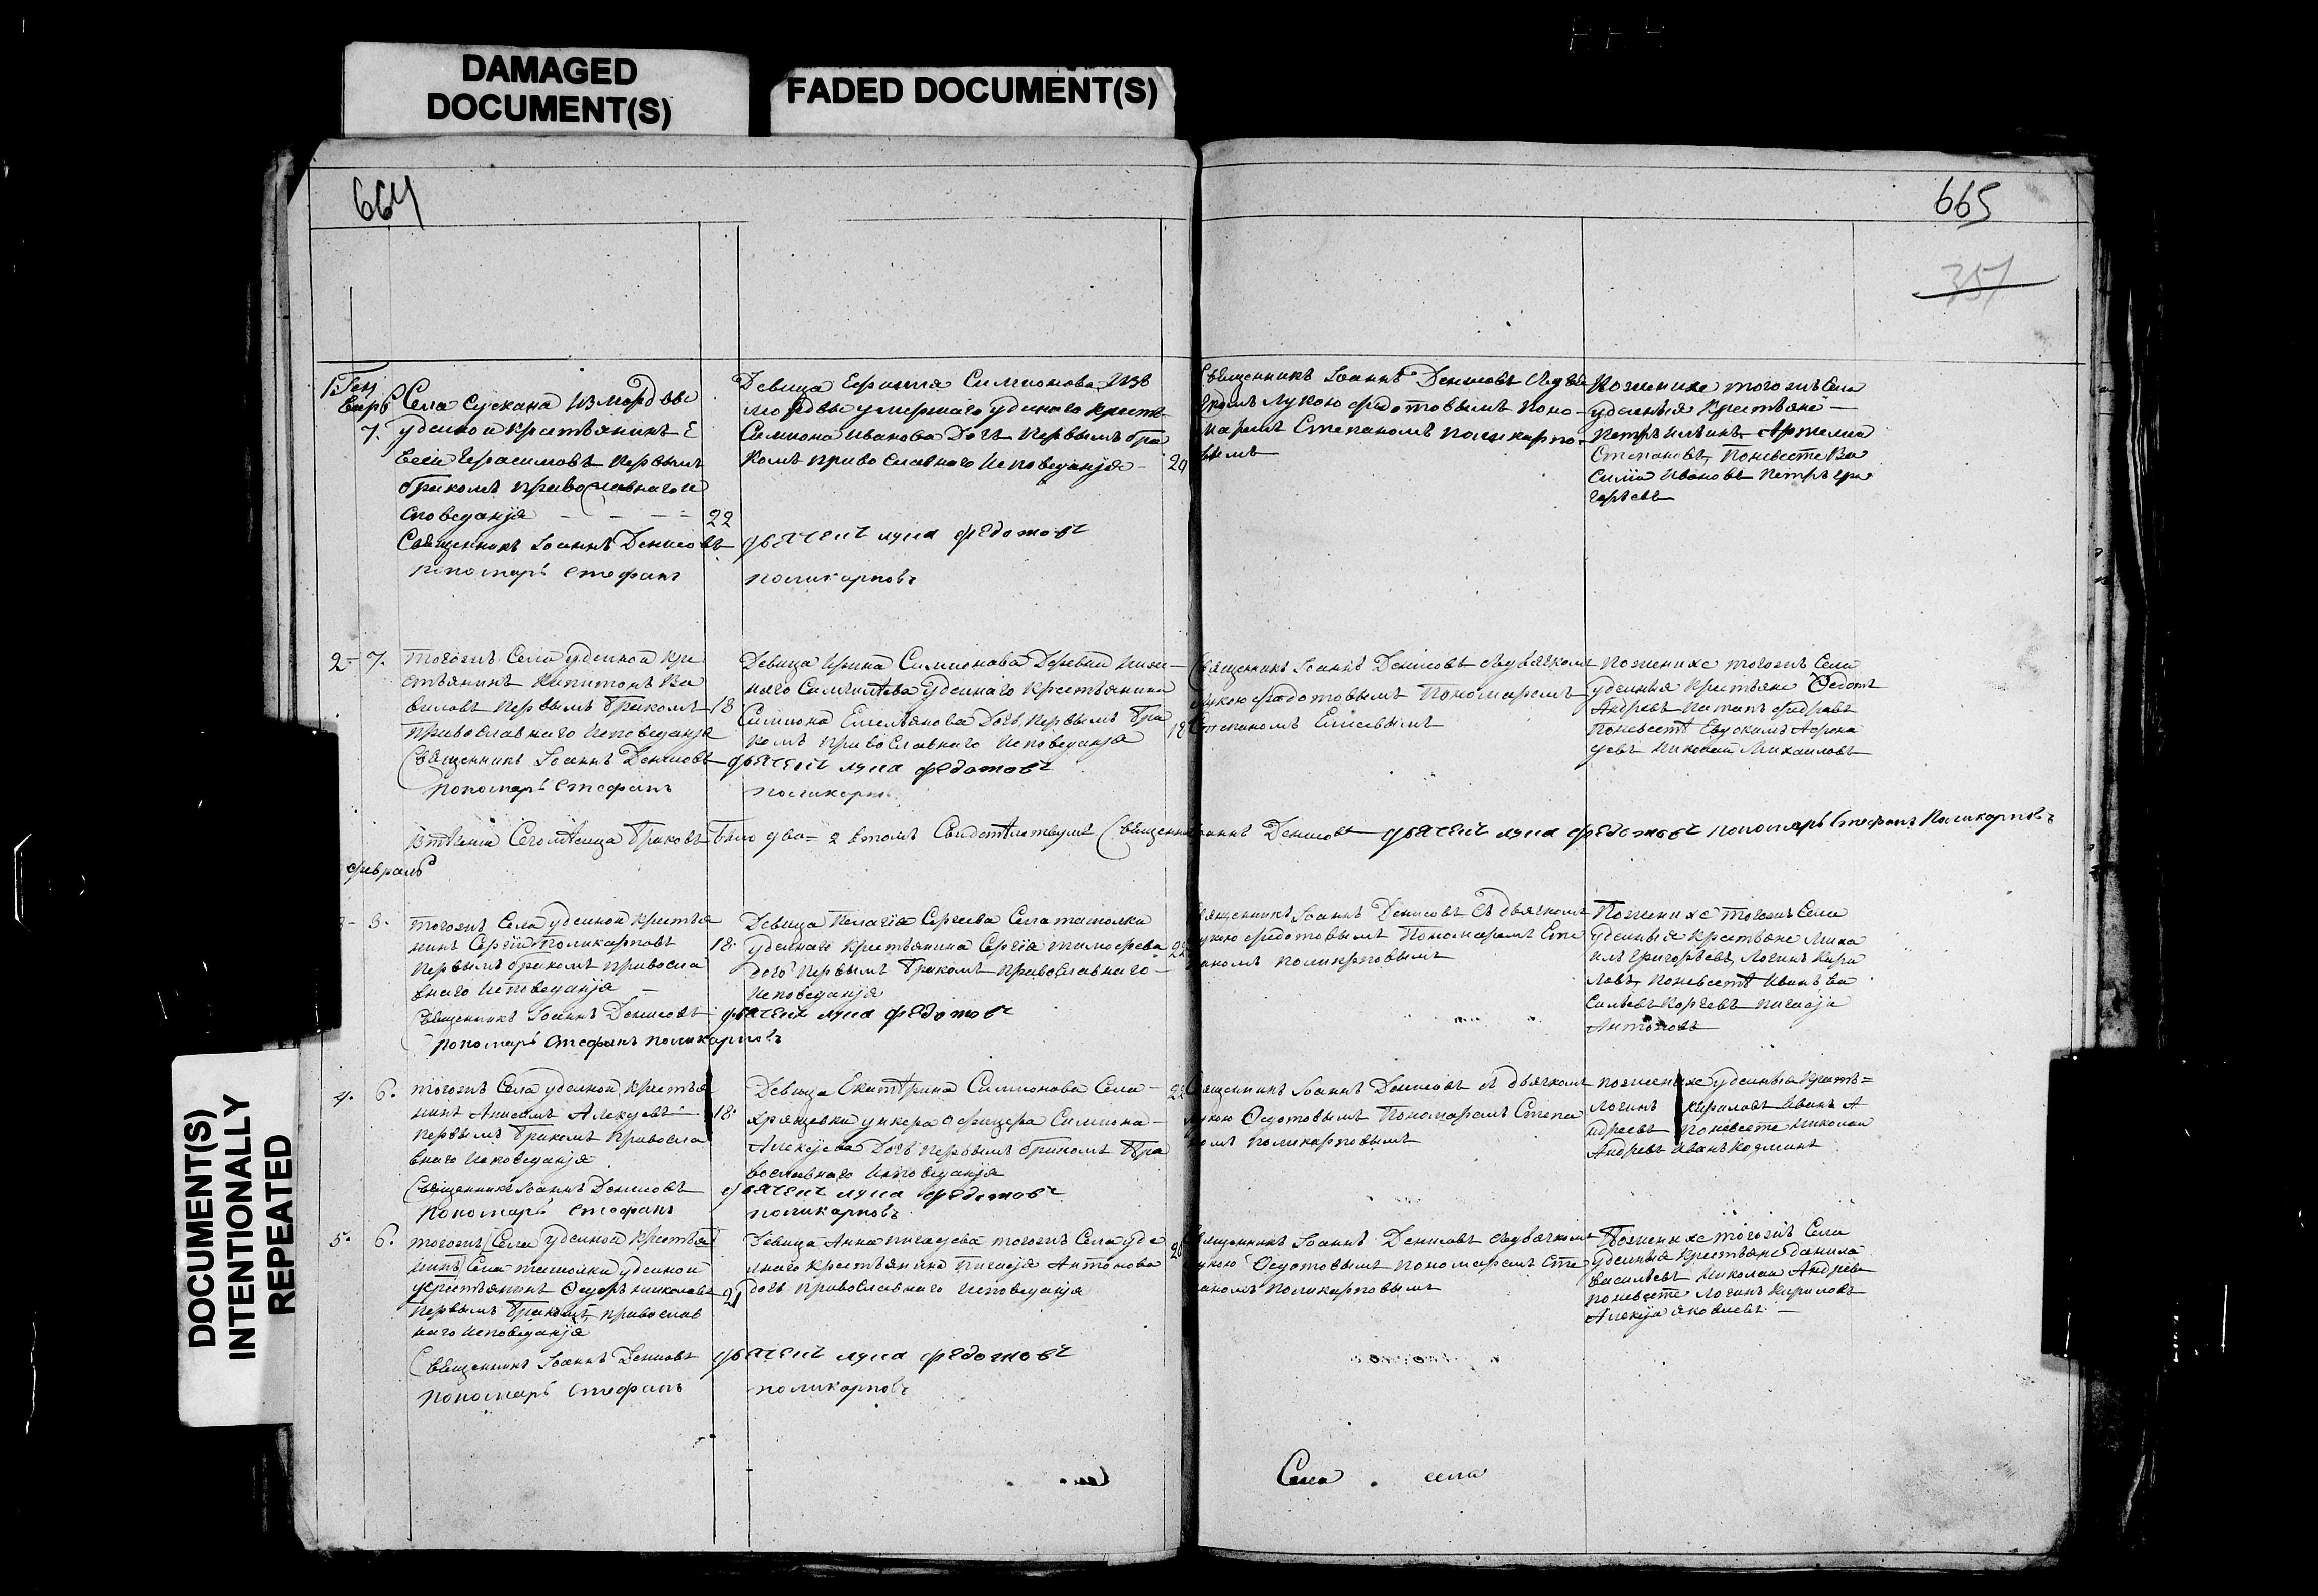 DAMAGED
DOCUMENT(S)
FADED DOCUMENT(S)
664
665
357
1. Ген
варь
7.
Села Сускана из мордвы
уделной крестьянинъ Е
всей Герасимовъ первымъ
бракомъ православнаго и
споведанія
22
Священникъ Іоаннъ Денисовъ
пономарь Стефанъ
Девица Ефимия Симионова из
мордвы умершаго уделнаго крестья
Симиона Иванова дочь первымъ бра
комъ православнаго исповеданія
20
дьячекъ лука федотовъ
поликарповъ
Священникъ Іоаннъ Денисовъ
Лукою Федотовымъ поно
маремъ Степаномъ поликарпо
вымъ
По женихе тогожъ Села
уделныя Крестьяне
Петръ Ильинъ Артемии
Степановъ По невесте Ва
силии Ивановъ Петръ Гри
горьевъ
2 7.
тогожъ Села уделной кре
стьянинъ Капитонъ Ва
виловъ первымъ бракомъ
православнаго исповеданія
18
Священникъ Іоаннъ Денисовъ
пономарь Стефанъ
Девица Ирина Симионова деревни ниж
няго уделнаго крестьянина
Симиона Емельянова дочь первымъ бра
комъ православнаго исповеданія
18
дьячекъ лука федотовъ
поликарповъ
Священникъ Іоаннъ Денисовъ съ дьячкомъ
Лукою Федотовымъ Пономаремъ
Степаномъ
По женихе тогожъ Села
уделныя Крестьяне Ѳедотъ
Андревъ
По невестѣ Евдокимъ
Николай Михаиловъ
Втечении Сего месяца браковъ было два 2 в томъ Свидетельствуемъ Священникъ Іоаннъ Денисовъ дьячекъ лука федотовъ пономарь Стефанъ Поликарповъ
февраль
3.
тогожъ Села уделной крестья
нинъ Сергій Поликарповъ
первымъ бракомъ правосла
внаго исповеданія
18
Священникъ Іоаннъ Денисовъ
пономарь Стефанъ поликарповъ
Девица Пелагія Сергеева Села ташолки
уделнаго крестьянина Сергія тимофеева
дочь первымъ бракомъ православнаго
исповеданія
22
дьячекъ лука федотовъ
Священникъ Іоаннъ Денисовъ съ дьячкомъ
Лукою федотовымъ Пономаремъ Сте
паномъ поликарповымъ
По женихе тогожъ Села
уделныя Крестьяне Миха
илъ Григорьевъ, Логинъ Кири
ловъ, По невестѣ Иванъ Ва
сильевъ
Антоновъ
4. 6.
тогожъ Села уделной крестья
нинъ Анисимъ Алексеевъ
первымъ бракомъ правосла
внаго исповеданія
18.
Священникъ Іоаннъ Денисовъ
пономарь Стефанъ
Девица Екатѣрина Симионова Села
хрящевки ункера офицера Симиона
Алексеева дочь первымъ бракомъ пра
вославнаго исповеданія
22
дьячекъ лука федотовъ
поликарповъ
Священникъ Іоаннъ Денисовъ съ дьячкомъ
Лукою Ѳедотовымъ Пономаремъ Степа
номъ поликарповымъ
По женихе уделныя Кресть
Логинъ Кириловъ Иванъ А
ндреевъ По невесте Николаи
Андревъ Иванъ Козминъ
5. 6.
тогожъ Села уделной крестья
нинъ Села ташолки уделной
крестьянинъ Ѳедоръ николаевъ
первымъ бракомъ православ
наго исповеданія
21
Священникъ Іоаннъ Денисовъ
пономарь Стефанъ
Девица Анна тогожъ Села уде
лнаго крестьянина Антонова
дочь православнаго исповеданія
20
дьячекъ лука федотовъ
поликарповъ
Священникъ Іоаннъ Денисовъ съ дьячкомъ
Лукою Ѳедотовымъ пономаремъ Сте
паномъ Поликарповымъ
По женихе тогожъ Села
уделныя Крестьяне данила
Василевъ Николаи Андреев
по невесте Логинъ Кириловъ
Алексеи Яковлевъ
Села села
DOCUMENT(S)
INTENTIONALLY
REPEATED